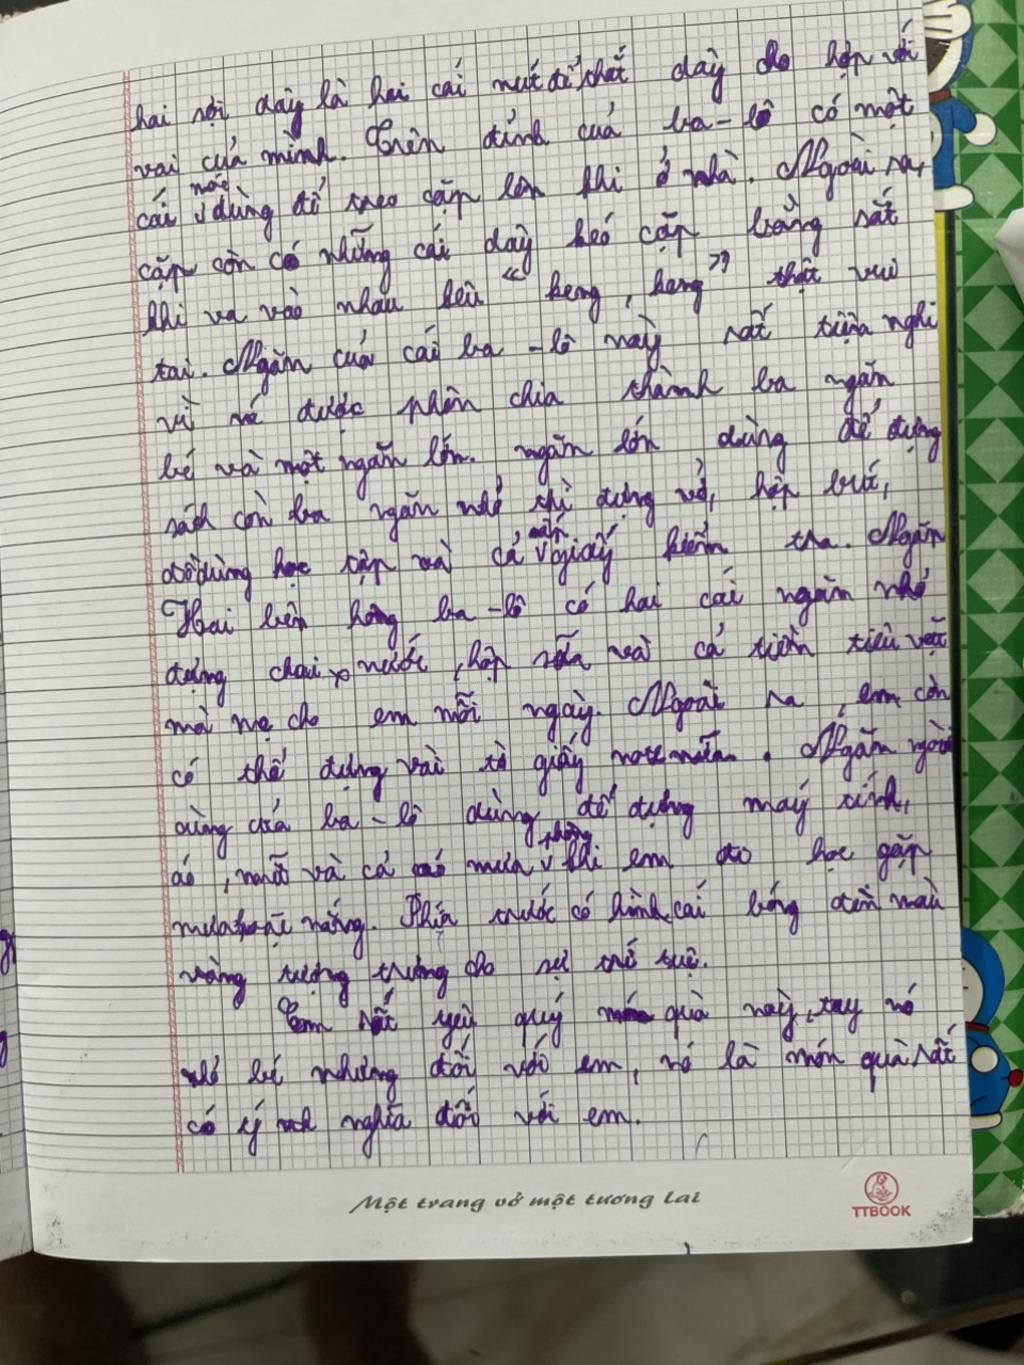 hai sợi dây là hai cái nút để thắt dây cho hợp với
vai của mình. Trên đỉnh của ba-lô có một
cái móc dùng để treo cặp lên khi ở nhà. Ngoài ra,
cặp còn có những cái dây kéo cặp bằng sắt
khi va vào nhau kêu " keng, keng" thật vui
tai. Ngăn của cái ba-lô này rất tiện nghi
vì nó được phân chia thành ba ngăn
bé và một ngăn lớn. ngăn lớn dùng để đựng
sách còn ba ngăn nhỏ thì đựng vở, hộp bút,
đồ dùng học tập và cả giấy kiểm tra. Ngăn
Hai bên hông ba-lô có hai cái ngăn nhỏ
đựng chai nước, hộp sữa và cả tiền tiêu vặt
mà mẹ cho em mỗi ngày. Ngoài ra, em còn
có thể đựng vài tờ giấy note nữa. Ngăn ngoài
cùng của ba-lô dùng để đựng máy tính,
áo, mũ và cả áo mưa phòng khi em đi học gặp
mưa hoặc nắng. Phía trước có hình cái bóng đèn màu
vàng tượng trưng cho sự trí tuệ.
Em rất yêu quý món quà này, tuy nó
nhỏ bé nhưng đối với em, nó là món quà rất
có ý nghĩa đối với em.
Một trang vở một tương lai
TTBOOK